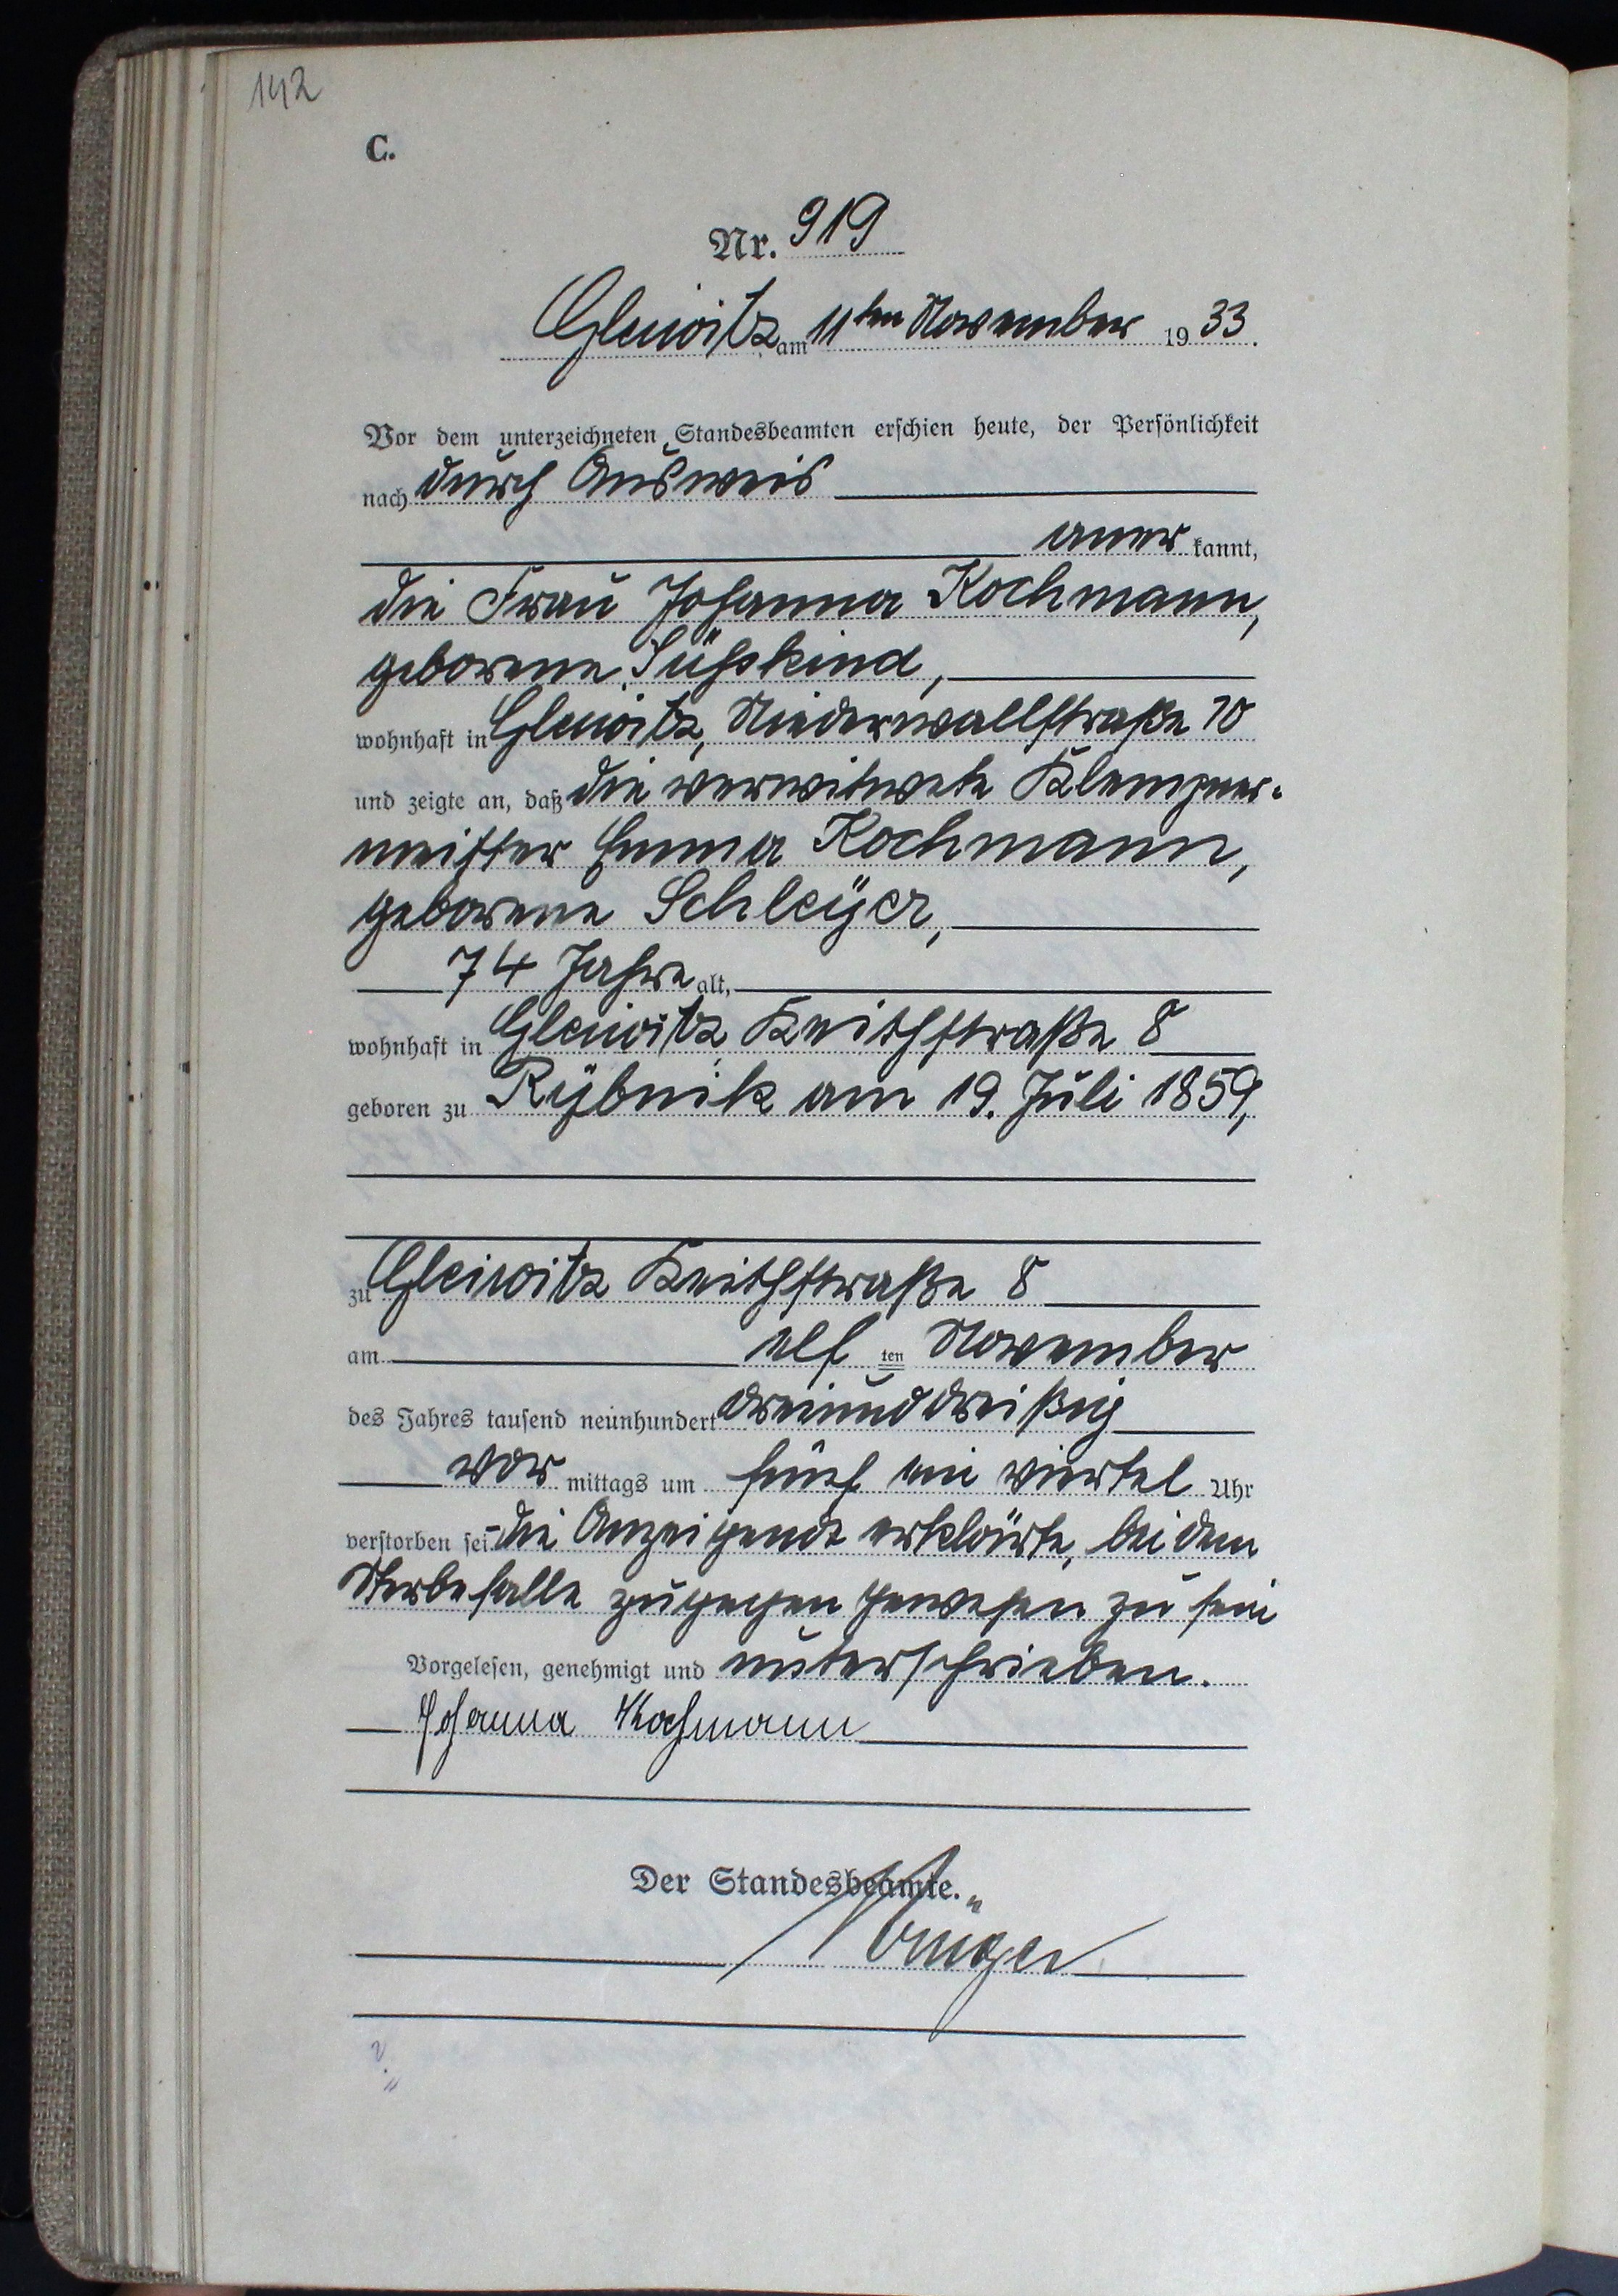 142
C.
Nr. 919
Gleiwitz am 11ten November 1933.
Vor dem unterzeichneten Standesbeamten erschien heute, der Persönlichkeit
nach durch Ausweis
anerkannt,
die Frau Johanna Kochmann,
geborene Süßskind,
wohnhaft in Gleiwitz, Niederwallstraße 10
und zeigte an, daß die verwitwete Klempner-
meister Emma Kochmann,
geborene Schleÿer,
74 Jahre alt,
wohnhaft in Gleiwitz Keithstraße 8
geboren zu Rÿbnik am 19. Juli 1859,
zu Gleiwitz Keithstraße 8
am elften November
des Jahres tausend neunhundert dreiunddreißig
vormittags um fünf ein viertel Uhr
verstorben sei. - die Anzeigende erklärte, bei dem
Sterbefalle zugegen gewesen zu sein
Vorgelesen, genehmigt und unterschrieben.
Johanna Kochmann
Der Standesbeamte.
Krüger